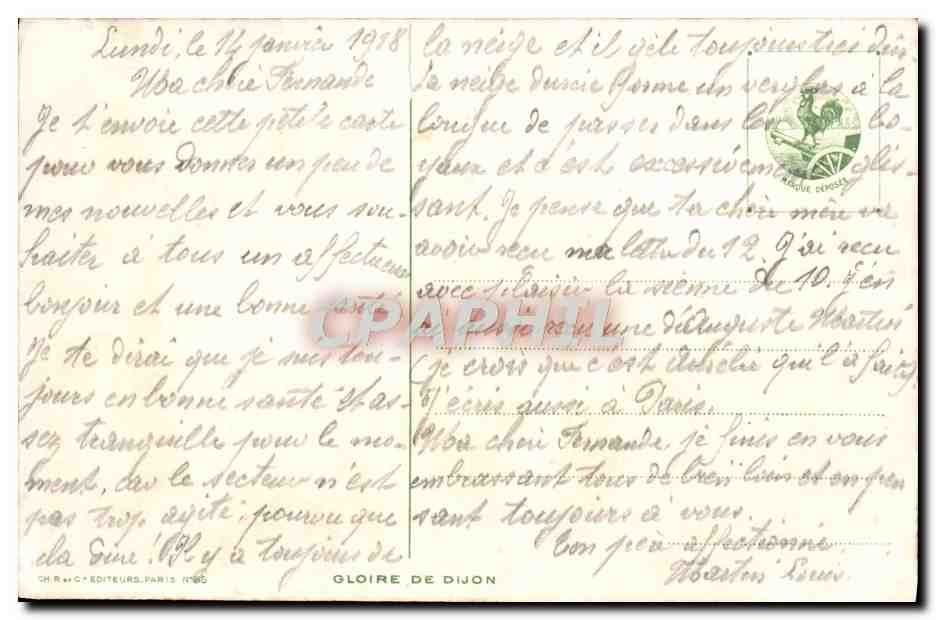 Lundi, le 14 janvier 1918
Ma chère Fernande
Je t'envoie cette petite carte
pour vous donner un peu de
mes nouvelles et vous sou-
haiter à tous un affectueux
bonjour et une bonne santé
Je te dirai que je suis tou-
jours en bonne santé et as-
sez tranquille pour le mo-
ment, car le secteur n'est
pas trop agité, pourvu que
cela dure! Il y a toujours de
la neige et il gèle toujours ici
la neige durcie donne un verglas à la
longue de passer dans les bo-
yaux et c'est excessivement glis-
sant. Je pense que ta chère mère va
avoir reçu ma lettre du 12. J'ai reçu
avec plaisir la sienne du 10. J'en
ai aussi reçu une d'Auguste Martin
(je crois que c'est qui l'a faite)
J'écris aussi à Paris.
Ma chère Fernande, je finis en vous
embrassant tous de bien loin et en pen
sant toujours à vous.
Ton père affectionné
Martin Louis.
MARQUE DÉPOSÉE
CPAPHIL
CH. R. et Cie EDITEURS, PARIS
GLOIRE DE DIJON